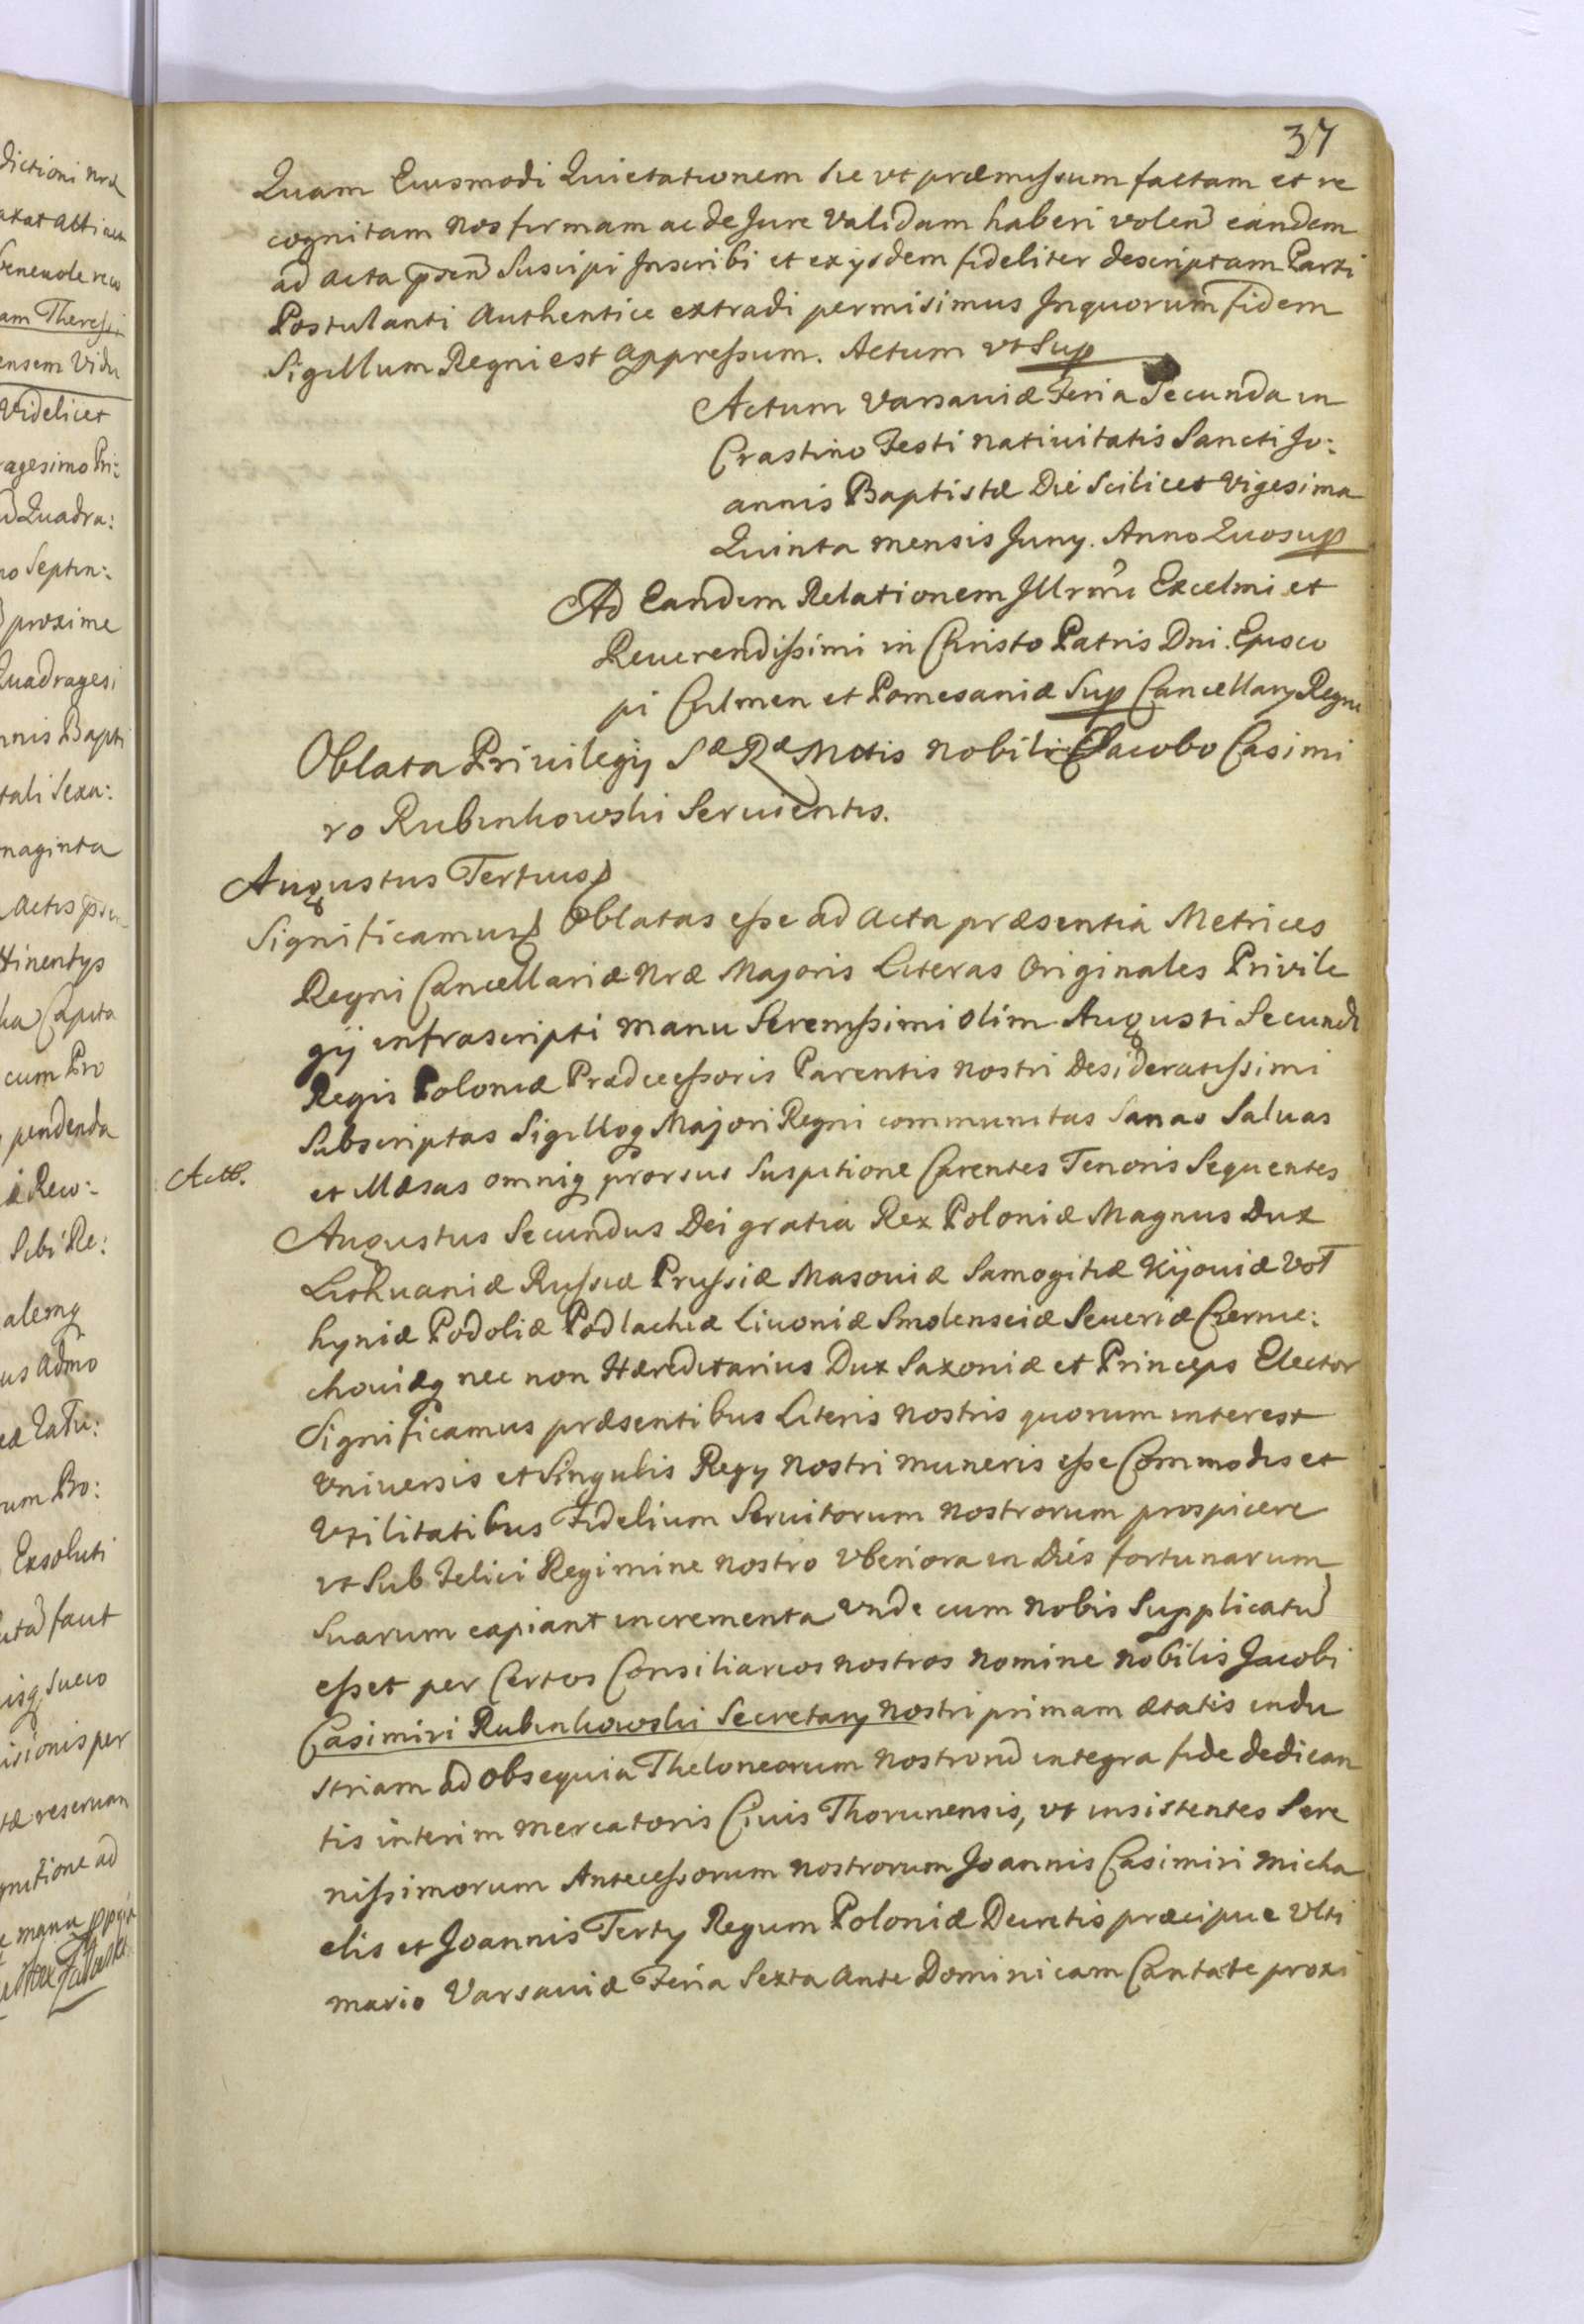 37
Quam Eiusmodi Quietationem sic vt præmissum factam et re
cognitam nos firmam ac de Jure validam haberi volen eandem
ad acta psen Suscipi Inscribi et ex ysdem fideliter descriptam Parti
Postulanti Authentice extradi permisimus Inquorum fidem
Sigillum Regni est appressum. Actum vt Sup
Actum Varsaviæ Feria Secunda in
Crastino Festi nativitatis Sancti Jo:
annis Baptistæ Die Scilicet Vigesima
Quinta mensis Juny. Anno Quo sup
Ad Eandem Relationem Illrmi Excelmi et
Reuerendissimi in Christo Patris Dni. Episco
pi Culmen et Pomesaniæ Sup Cancellary Regni
Oblata Privilegij Sæ Ræ Mttis nobili Jacobo Casimi
ro Rubinkowski Seruientis.
Augustus Tertius
Significamus Oblatas esse ad acta præsentia Metrices
Regni Cancellariæ Nræ Majoris Literas Originales Privile
gij infrascripti manu Serenissimi olim Augusti Secundi
Regis Poloniæ Prædecessoris Parentis nostri Desideratissimi
Subscriptas Sigilloq Majori Regni communitas Sanas Saluas
et Illæsas omniq prorsus Suspitione Carentes Tenoris Sequentes
Augustus Secundus Dei gratia Rex Poloniæ Magnus Dux
Lithuaniæ Russiæ Prussiæ Masouiæ Samogitiæ Kijouiæ Vol
hyniæ Podoliæ Podlachiæ Liuoniæ Smolensciæ Seueriæ Czernie:
chouiæq nec non Hæreditarius Dux Saxoniæ et Princeps Elector
Significamus præsentibus Literis nostris quorum interest
Vniuersis et Singulis Regy nostri muneris esse Commodis et
Vtilitatibus Fidelium Seruitorum nostrorum prospicere
vt Sub Felici Regimine nostro Vberiora in Dies fortunarum
Suarum capiant incrementa vnde cum nobis Supplicatu
esset per Certos Consiliarios nostros nomine nobilis Jacobi
Casimiri Rubinkowski Secretary nostri primam ætatis indu
striam ad obsequia Theloneorum nostroru integra fide dedican
tis interim mercatoris Ciuis Thorunensis, vt insistentes Sere
nissimorum Antecessorum nostrorum Joannis Casimiri Micha
elis et Joannis Terty Regum Poloniæ Decretis præcipue Vlti
mario Varsauiæ Feria Sexta Ante Dominicam Cantate proxi